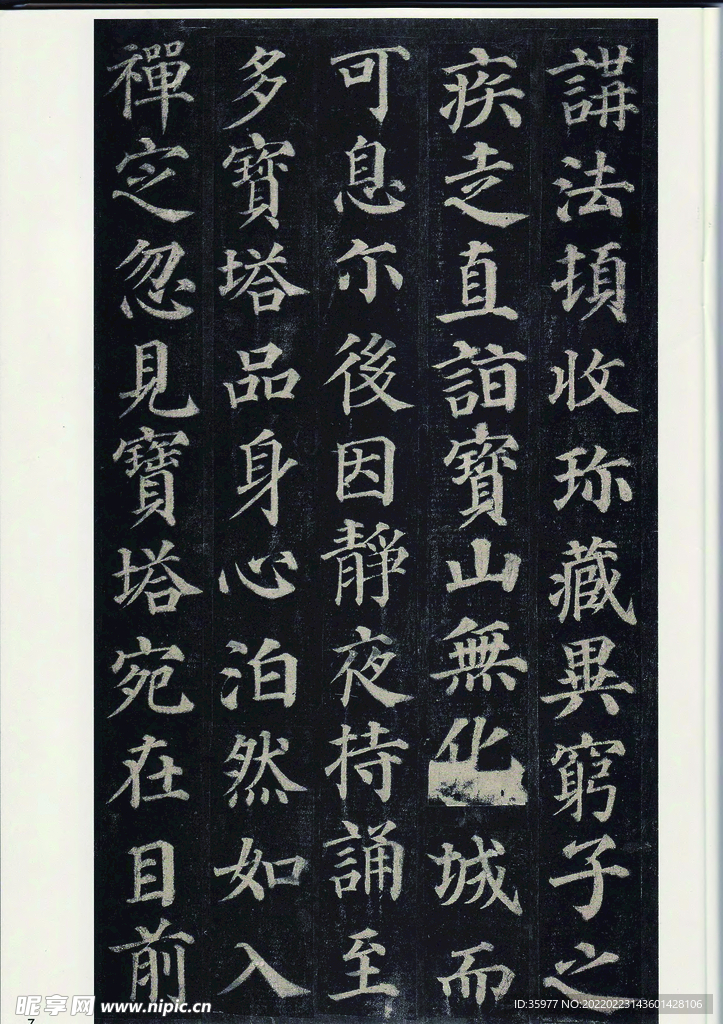 講法頓收珎藏異窮子之
疾走直詣寶山無化城而
可息尒後因靜夜持誦至
多寶塔品身心泊然如入
禪定忽見寶塔宛在目前
7
昵享网 www.nipic.cn
ID:35977 NO:20220223143601428106